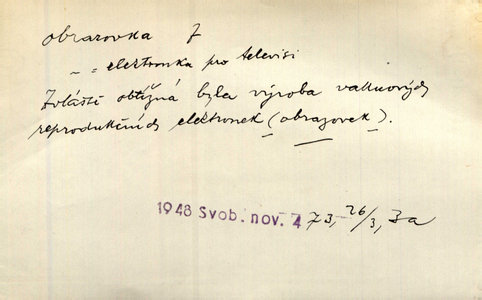 obrazovka f
„ = elektronka pro televisi
Zvláště obtížná byla výroba vakuových
reprodukčních elektronek (obrazovek).
1948 Svob. nov. 4 73, 26/3, 3a